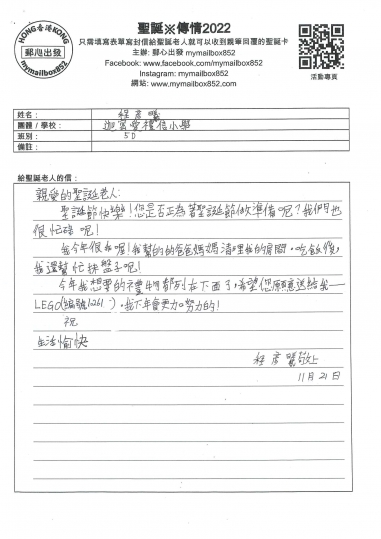 HONG KONG 香港
郵心出發
mymailbox852
聖誕※傳情2022
只需填寫表單寫封信給聖誕老人就可以收到親筆回覆的聖誕卡
主辦: 郵心出發 mymailbox852
Facebook: www.facebook.com/mymailbox852
Instagram: mymailbox852
網站: www.mymailbox852
活動專頁
姓名: 程彥
團體 / 學校: 迦密愛禮信小學
班別: 5D
備註:
給聖誕老人的信:
親愛的聖誕老人:
聖誕節快樂!您是否正為著聖誕節做準備呢?我們也
很忙碌呢!
我今年很乖喔!我幫的爸爸媽媽清理我的房間。吃飯後,
我還幫忙抹盤子呢!
今年我想要的禮物都列在下面了,希望您願意送給我—
LEGO(編號:6261)。我下年會更加努力的!
祝
生活愉快
程彥 敬上
11月21日